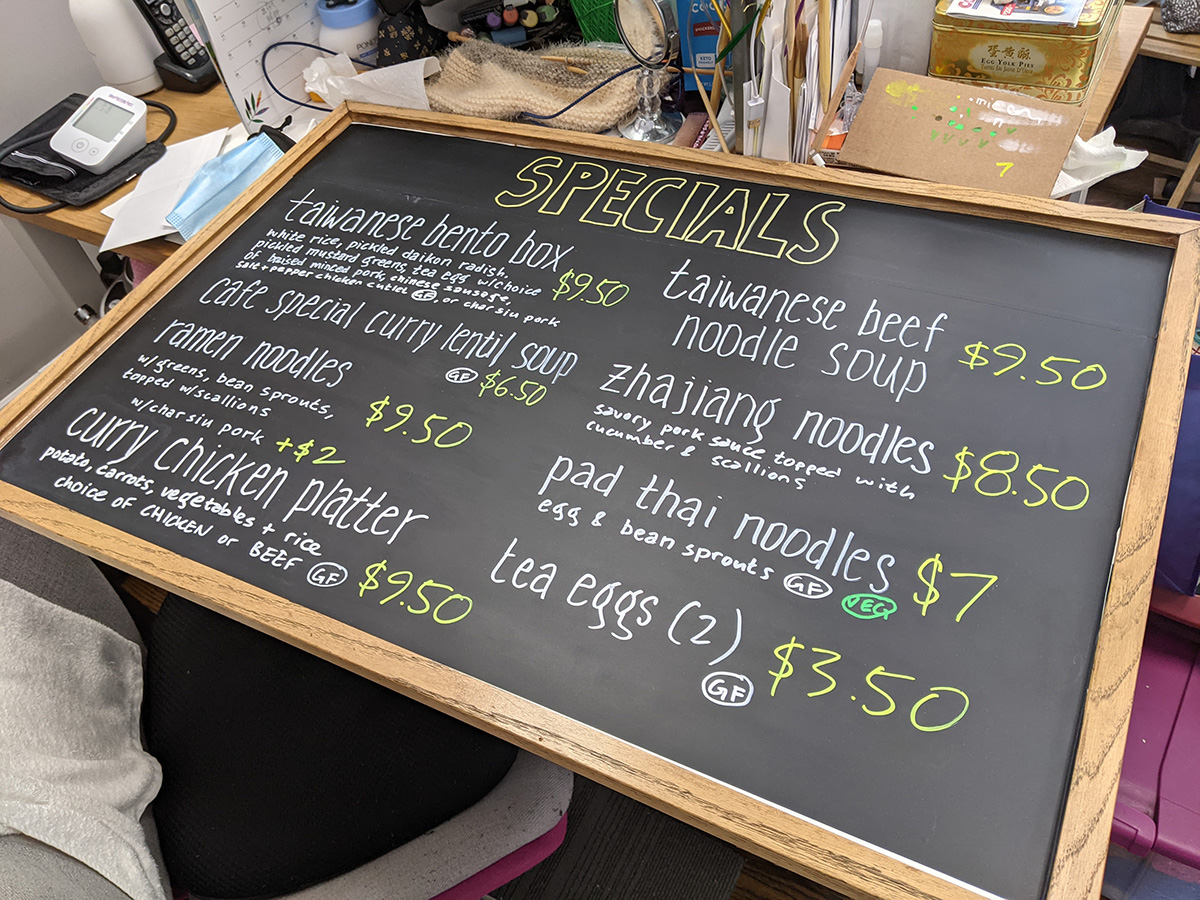 SPECIALS
taiwanese bento box
white rice, pickled daikon radish,
pickled mustard greens, tea egg w/choice
of braised minced pork, chinese sausage,
salt + pepper chicken cutlet GF, or char siu pork
$9.50
cafe special curry lentil soup
GF $6.50
ramen noodles
w/greens, bean sprouts,
topped w/scallions
$9.50
w/char siu pork +$2
curry chicken platter
potato, carrots, vegetables + rice
choice of CHICKEN or BEEF GF
$9.50
taiwanese beef
noodle soup $9.50
zhajiang noodles
savory pork sauce topped with
cucumber & scallions
$8.50
pad thai noodles
egg & bean sprouts GF VEG
$7
tea eggs (2)
GF $3.50
蛋黃酥
EGG YOLK PIES
7